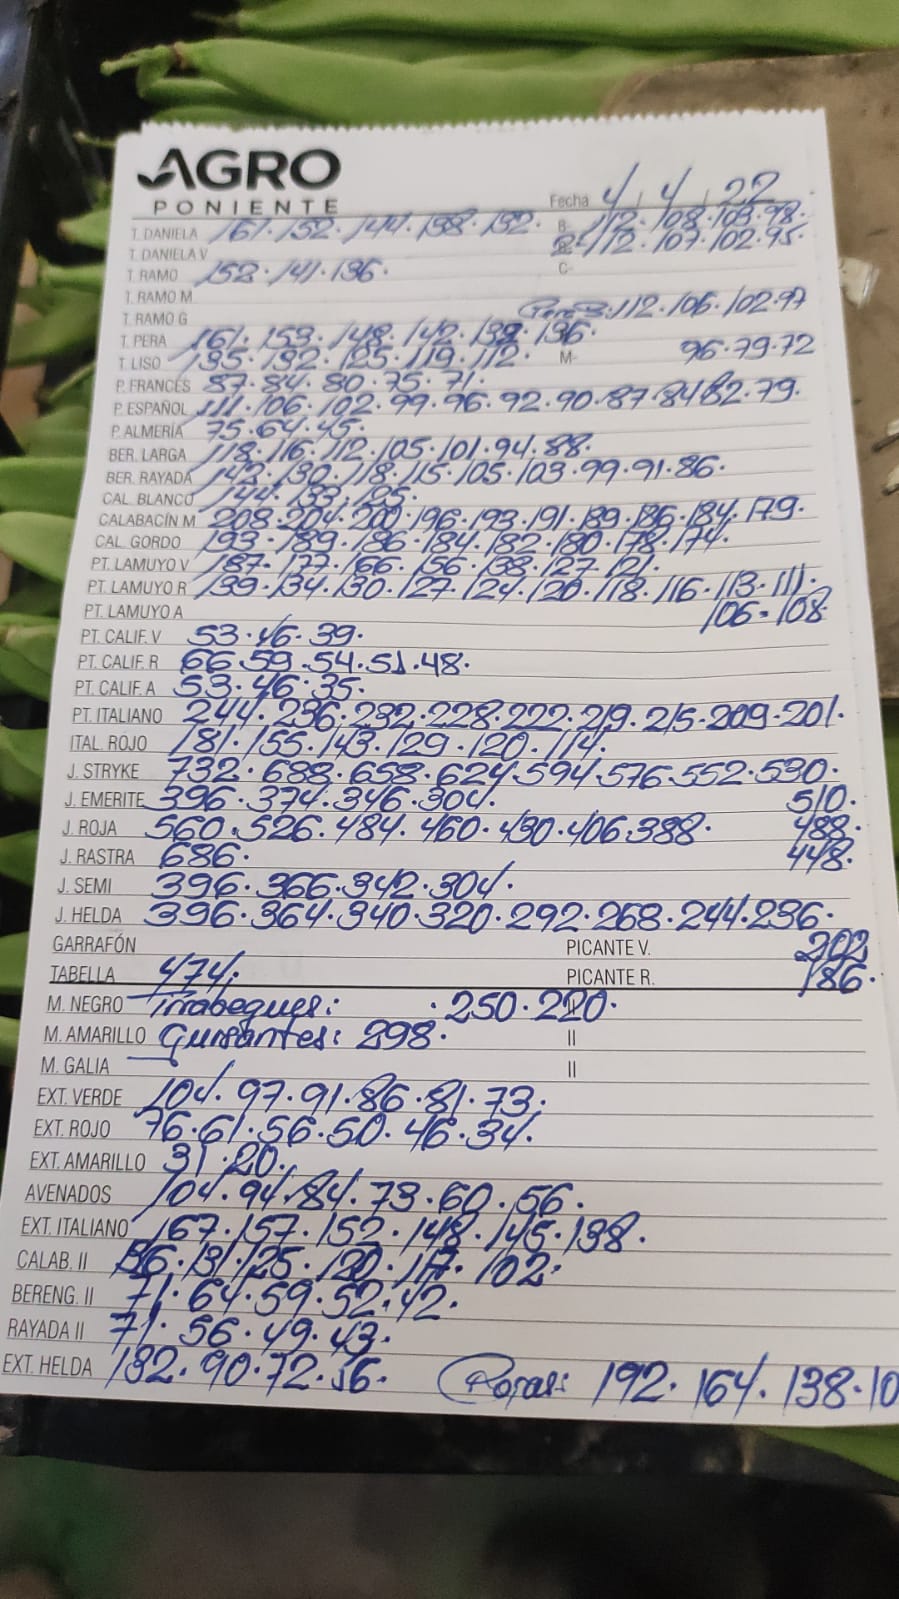 AGRO
PONIENTE
Fecha 4, 4, 22
T. DANIELA 161. 152. 144. 138. 132. B- 112. 108. 103. 98.
T. DANIELA V 2- 112. 107. 102. 95.
T. RAMO 152. 141. 136. C-
T. RAMO M
T. RAMO G 112. 106. 102. 97
T. PERA 161. 153. 148. 142. 139. 136.
T. LISO 135. 132. 125. 119. 112. M- 96. 79. 72
P. FRANCÉS 87. 84. 80. 75. 71.
P. ESPAÑOL 111. 106. 102. 99. 96. 92. 90. 87. 84. 82. 79.
P. ALMERÍA 75. 64. 45.
BER. LARGA 118. 116. 112. 105. 101. 94. 88.
BER. RAYADA 142. 130. 118. 115. 105. 103. 99. 91. 86.
CAL. BLANCO 144. 133. 125.
CALABACÍN M 208. 204. 200. 196. 193. 191. 189. 186. 184. 179.
CAL. GORDO 193. 189. 186. 184. 182. 180. 178. 174.
PT. LAMUYO V 187. 177. 166. 156. 138. 127. 121.
PT. LAMUYO R 139. 134. 130. 127. 124. 120. 118. 116. 113. 111.
PT. LAMUYO A 106. 108
PT. CALIF. V 53. 46. 39.
PT. CALIF. R 66. 59. 54. 51. 48.
PT. CALIF. A 53. 46. 35.
PT. ITALIANO 244. 236. 232. 228. 222. 219. 215. 209. 201.
ITAL. ROJO 181. 155. 143. 129. 120. 114.
J. STRYKE 732. 688. 658. 624. 594. 576. 552. 530.
J. EMERITE 396. 374. 346. 304. 510.
J. ROJA 560. 526. 484. 460. 430. 406. 388. 488.
J. RASTRA 686. 448.
J. SEMI 396. 366. 342. 304.
J. HELDA 396. 364. 340. 320. 292. 268. 244. 236.
GARRAFÓN PICANTE V. 202
TABELLA 474. PICANTE R. 186.
M. NEGRO Tirabeques: . 250. 220.
M. AMARILLO Guisantes: 298. II
M. GALIA II
EXT. VERDE 104. 97. 91. 86. 81. 73.
EXT. ROJO 76. 61. 56. 50. 46. 34.
EXT. AMARILLO 31. 20.
AVENADOS 104. 94. 84. 73. 60. 56.
EXT. ITALIANO 167. 157. 152. 148. 145. 138.
CALAB. II 136. 131. 125. 120. 117. 102.
BERENG. II 71. 64. 59. 52. 42.
RAYADA II 71. 56. 49. 43.
EXT. HELDA 132. 90. 72. 56. Rojas: 192. 164. 138. 10